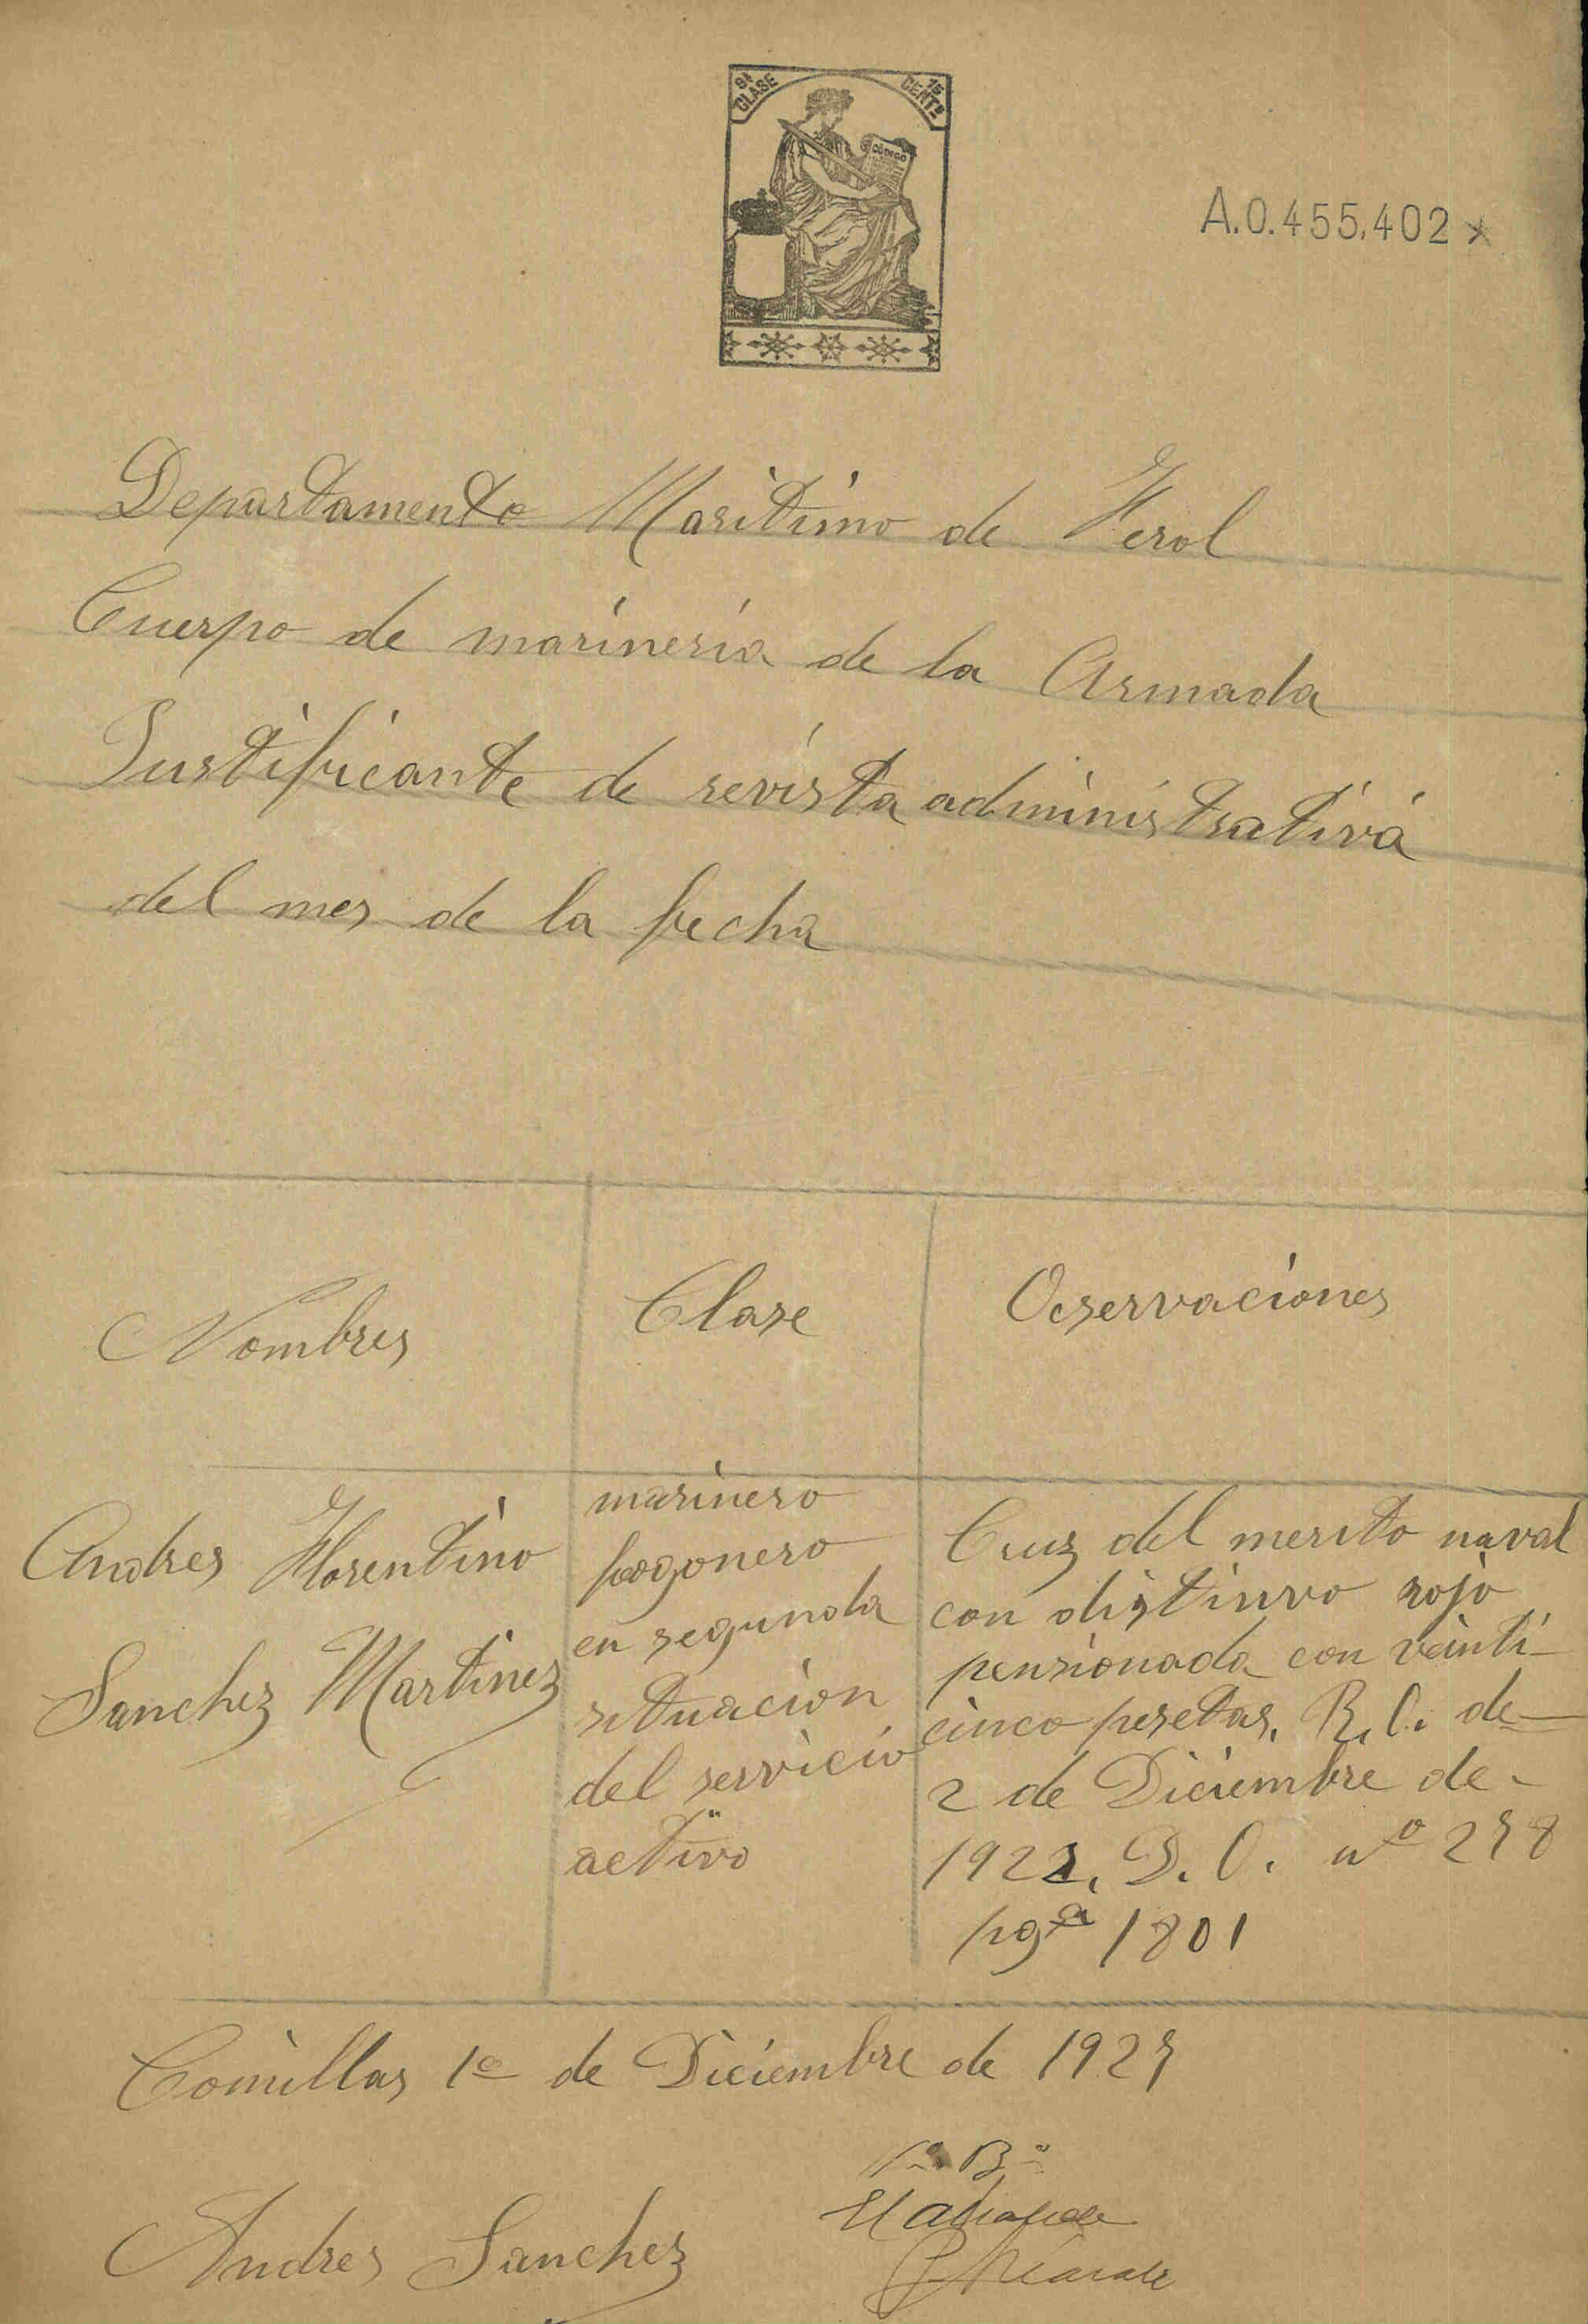 9ª CLASE
15 CENTs
CÓDIGO
A.0.455.402
Departamento Maritimo de Ferol
Cuerpo de marineria de la Armada
Justificante de revista administrativa
del mes de la fecha
Nombres
Clase
Ocservaciones
Andres Florentino
Sanchez Martinez
marinero
fogonero
en segunda
situacion
del servicio
activo
Cruz del merito naval
con distinvo rojo
pensionada con veinti-
cinco pesetas. R.O. de
2 de Diciembre de
192. D.O. nº 278
pgª 1801
Comillas 1º de Diciembre de 1927
Vº Bº
El
Andres Sanchez